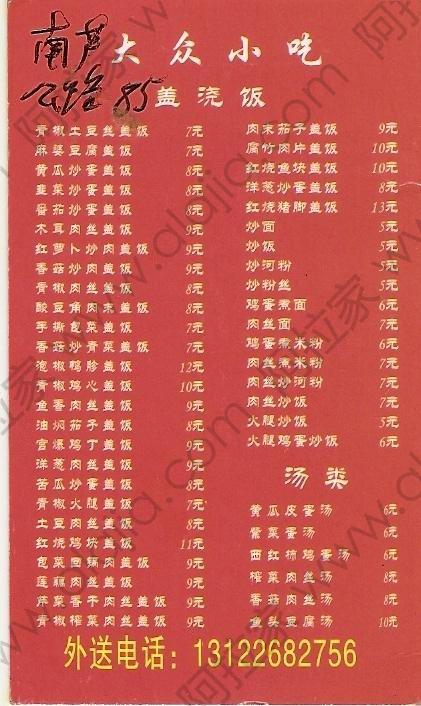 南芦
公路 85
大众小吃
盖浇饭
青椒土豆丝盖饭 7元
麻婆豆腐盖饭 7元
黄瓜炒蛋盖饭 8元
韭菜炒蛋盖饭 8元
番茄炒蛋盖饭 8元
木耳肉丝盖饭 9元
红萝卜炒肉盖饭 9元
香菇炒肉盖饭 9元
青椒肉丝盖饭 8元
酸豆角肉末盖饭 8元
手撕包菜盖饭 7元
香菇炒青菜盖饭 7元
泡椒鸭胗盖饭 12元
青椒鸡心盖饭 10元
鱼香肉丝盖饭 9元
油焖茄子盖饭 8元
宫爆鸡丁盖饭 9元
洋葱肉丝盖饭 9元
苦瓜炒蛋盖饭 8元
青椒火腿盖饭 7元
土豆肉丝盖饭 8元
红烧鸡块盖饭 11元
包菜回锅肉盖饭 9元
莲藕肉丝盖饭 9元
芹菜香干肉丝盖饭 9元
青椒香干肉丝盖饭 9元
肉末茄子盖饭 9元
腐竹肉片盖饭 10元
红烧鱼块盖饭 10元
洋葱炒蛋盖饭 8元
红烧猪脚盖饭 13元
炒面 5元
炒饭 5元
炒河粉 5元
炒粉丝 5元
鸡蛋煮面 6元
肉丝面 7元
鸡蛋煮米粉 6元
肉丝煮米粉 7元
肉丝炒河粉 7元
肉丝炒饭 7元
火腿炒饭 5元
火腿鸡蛋炒饭 6元
汤类
黄瓜皮蛋汤 6元
紫菜蛋汤 6元
西红柿鸡蛋汤 6元
榨菜肉丝汤 8元
香菇肉丝汤 8元
鱼头豆腐汤 10元
外送电话：13122682756
阿拉家 www.alajia.com